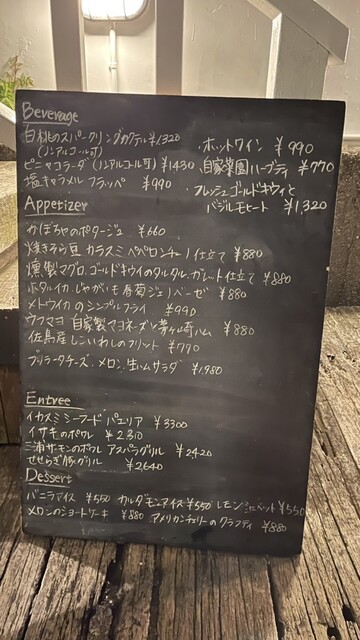 Beverage
白桃のスパークリングカクテル ¥1,320
(ノンアルコール可)
ピニャコラーダ(ノンアルコール可) ¥1430
塩キャラメル フラッペ ¥990
・ホットワイン ¥990
自家菜園ハーブティ ¥770
・フレッシュゴールドキウイと
バジルモヒート ¥1,320
Appetizer
かぼちゃのポタージュ ¥660
焼きそら豆 カラスミペペロンチーノ仕立て ¥880
燻製マグロ、ゴールドキウイのタルタル、ガレット仕立て ¥880
ホタルイカ、じゃがいも 春菊ジェノベーゼ ¥880
メトウイカのシンプルフライ ¥990
ウフマヨ 自家製マヨネーズ 茅ヶ崎ハム ¥880
佐島産しこいわしのフリット ¥770
ブリラータチーズ、メロン、生ハムサラダ ¥1,980
Entree
イカスミシーフードパエリア ¥3300
イサキのポワレ ¥2310
三浦サーモンのポワレ アスパラグリル ¥2,420
せせらぎ豚グリル ¥2640
Dessert
バニラアイス ¥550 カルダモンアイス ¥550 レモンシャーベット ¥550
メロンのショートケーキ ¥880 アメリカンチェリーのクラフティ ¥880